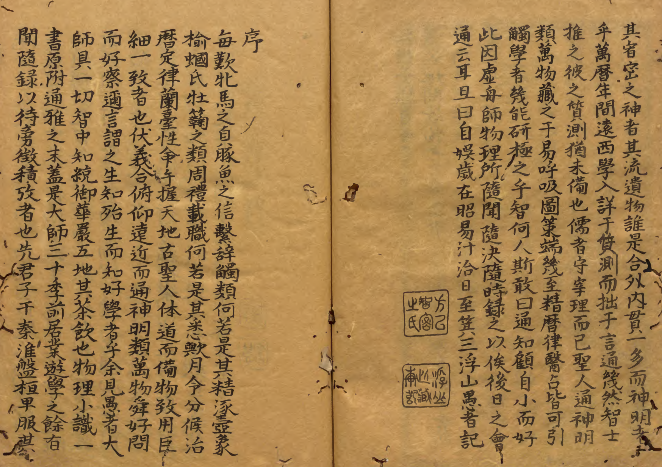 其宥密之神者其流遺物誰是合外内貫一多而神明者
乎萬曆年間遠西學入詳于質測而拙于言通幾然智士
推之彼之質測猶未備也儒者守宰理而已聖人通神明
類萬物藏之于易呼吸圖策端幾至精曆律醫占皆可引
觸學者幾能研極之乎智何人斯敢曰通知顧自小而好
此因虛舟師物理所隨聞隨決隨時錄之以俟後日之會
通云耳且曰自娛歲在昭易汁洽日至箕三浮山愚者記
方以智密之氏
序
每歎牝馬之自豚魚之信繫辭觸類何若是其精涿壺象
榆蟈氏牡蘜之類周禮載職何若是其悉歟月令分候治
曆定律蘭臺性争午握天地古聖人体道而備物致用巨
細一致者也伏羲合俯仰遠近而通神明類萬物舜好問
而好察邇言謂之生知殆生而知好學者乎余見愚者大
師具一切智中知統御華嚴五地其茶飲也物理小識一
書原附通雅之末蓋是大師三十季前居業遊學之餘有
聞隨錄以待旁徵積攷者也先君子于秦淮盤桓卑服祺